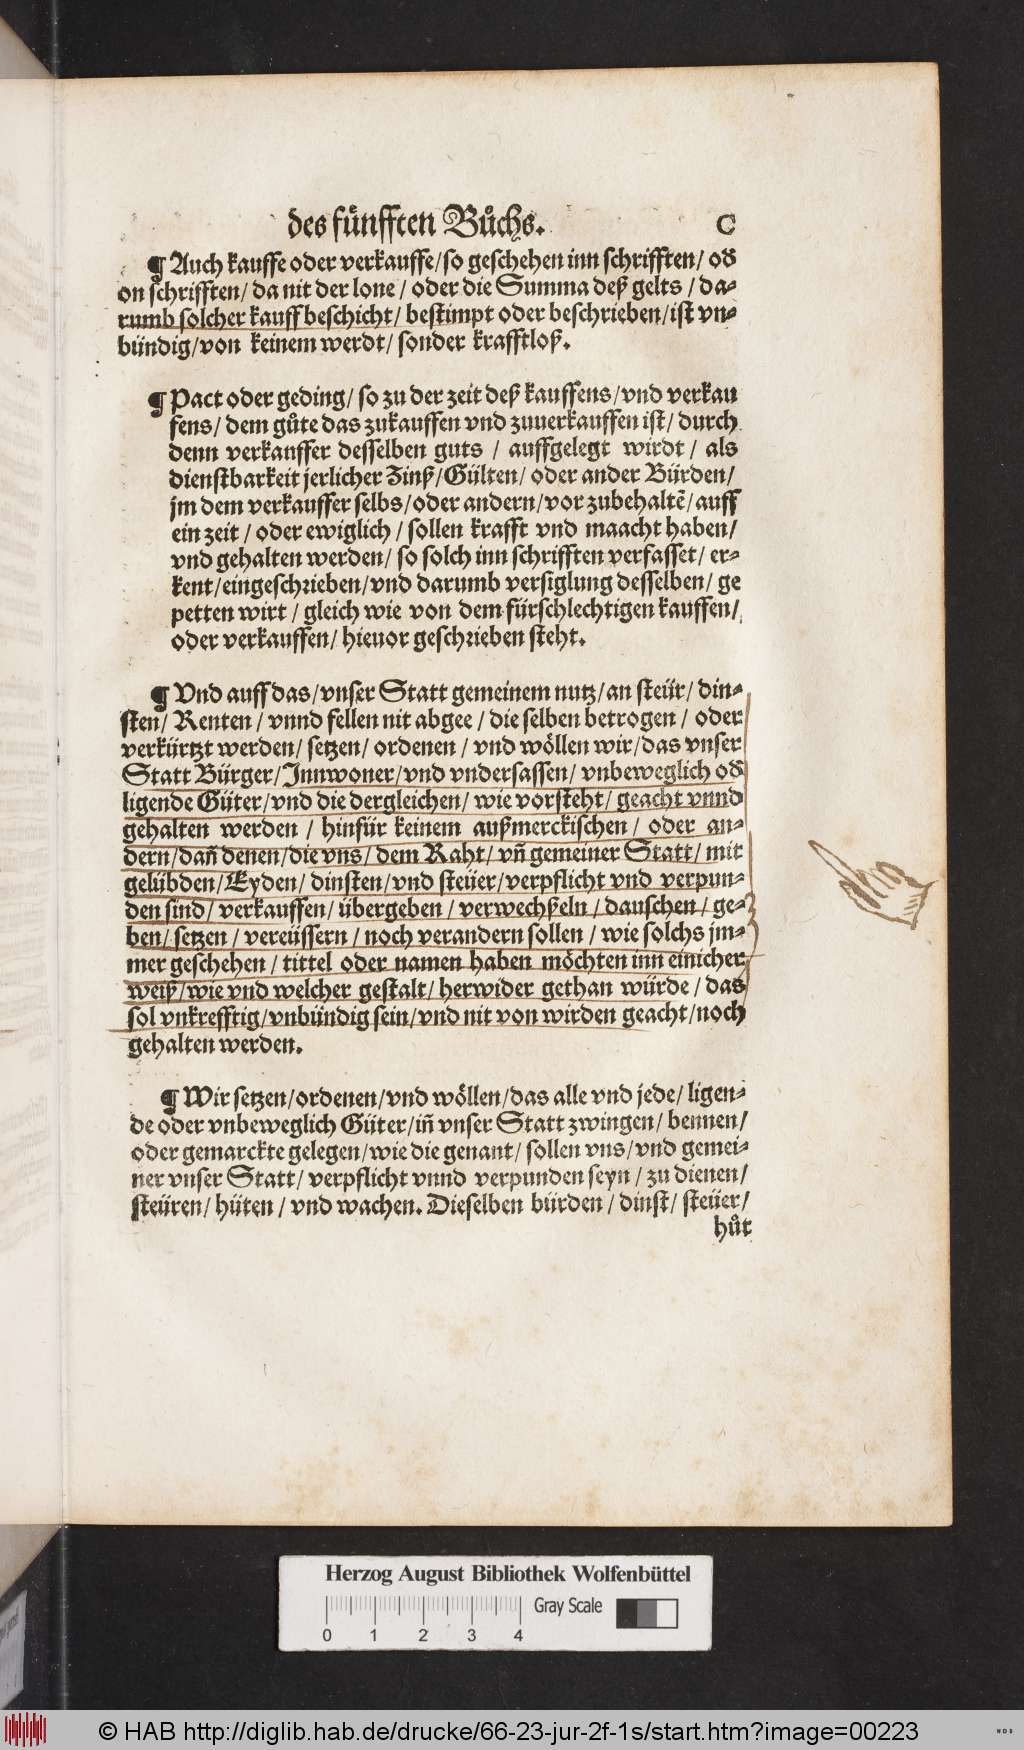 des fuͤnfften Buͤchs. C
¶ Auch kauffe oder verkauffe/ so geschehen inn schrifften/ od̕
on schrifften/ da nit der lone/ oder die Summa deß gelts/ da⸗
rumb solcher kauff beschicht/ bestimpt oder beschrieben/ ist vn⸗
bündig/ von keinem werdt/ sonder krafftloß.
¶ Pact oder geding/ so zu der zeit deß kauffens/ vnd verkau
fens/ dem guͤte das zukauffen vnd zuuerkauffen ist/ durch
denn verkauffer desselben guts / auffgelegt wirdt / als
dienstbarkeit jerlicher Zinß/ Gülten/ oder ander Bürden/
jm dem verkauffer selbs/ oder andern/ vor zubehaltē/ auff
ein zeit / oder ewiglich / sollen krafft vnd maacht haben/
vnd gehalten werden/ so solch inn schrifften verfasset/ er⸗
kent/ eingeschrieben/ vnd darumb versiglung desselben/ ge
petten wirt / gleich wie von dem fürschlechtigen kauffen/
oder verkauffen/ hieuor geschrieben steht.
¶ Vnd auff das/ vnser Statt gemeinem nutz/ an steür/ din⸗
sten/ Renten / vnnd fellen nit abgee / die selben betrogen / oder
verkürtzt werden/ setzen/ ordenen / vnd wöllen wir/ das vnser
Statt Bürger/ Innwoner/ vnd vndersassen/ vnbeweglich od̕
ligende Güter/ vnd die dergleichen/ wie vorsteht/ geacht vnnd
gehalten werden / hinfür keinem außmerckischen / oder an⸗
dern/ dañ denen/ die vns/ dem Raht/ vñ gemeiner Statt/ mit
gelübden/ Eyden/ dinsten/ vnd steüer/ verpflicht vnd verpun⸗
den sind/ verkauffen/ übergeben / verwechßeln/ dauschen/ ge⸗
ben/ setzen / vereüssern / noch verandern sollen / wie solchs jm⸗
mer geschehen / tittel oder namen haben möchten inn einicher
weiß/ wie vnd welcher gestalt/ herwider gethan würde/ das
sol vnkrefftig/ vnbündig sein/ vnd nit von wirden geacht/ noch
gehalten werden.
¶ Wir setzen/ ordenen/ vnd wöllen/ das alle vnd jede/ ligen⸗
de oder vnbeweglich Güter/ iñ vnser Statt zwingen/ bennen/
oder gemarckte gelegen/ wie die genant/ sollen vns/ vnd gemei⸗
ner vnser Statt/ verpflicht vnnd verpunden seyn / zu dienen/
steüren/ hüten / vnd wachen. Dieselben bürden / dinst/ steüer/
huͤt
Herzog August Bibliothek Wolfenbüttel
Gray Scale
0 1 2 3 4
© HAB http://diglib.hab.de/drucke/66-23-jur-2f-1s/start.htm?image=00223
WDB